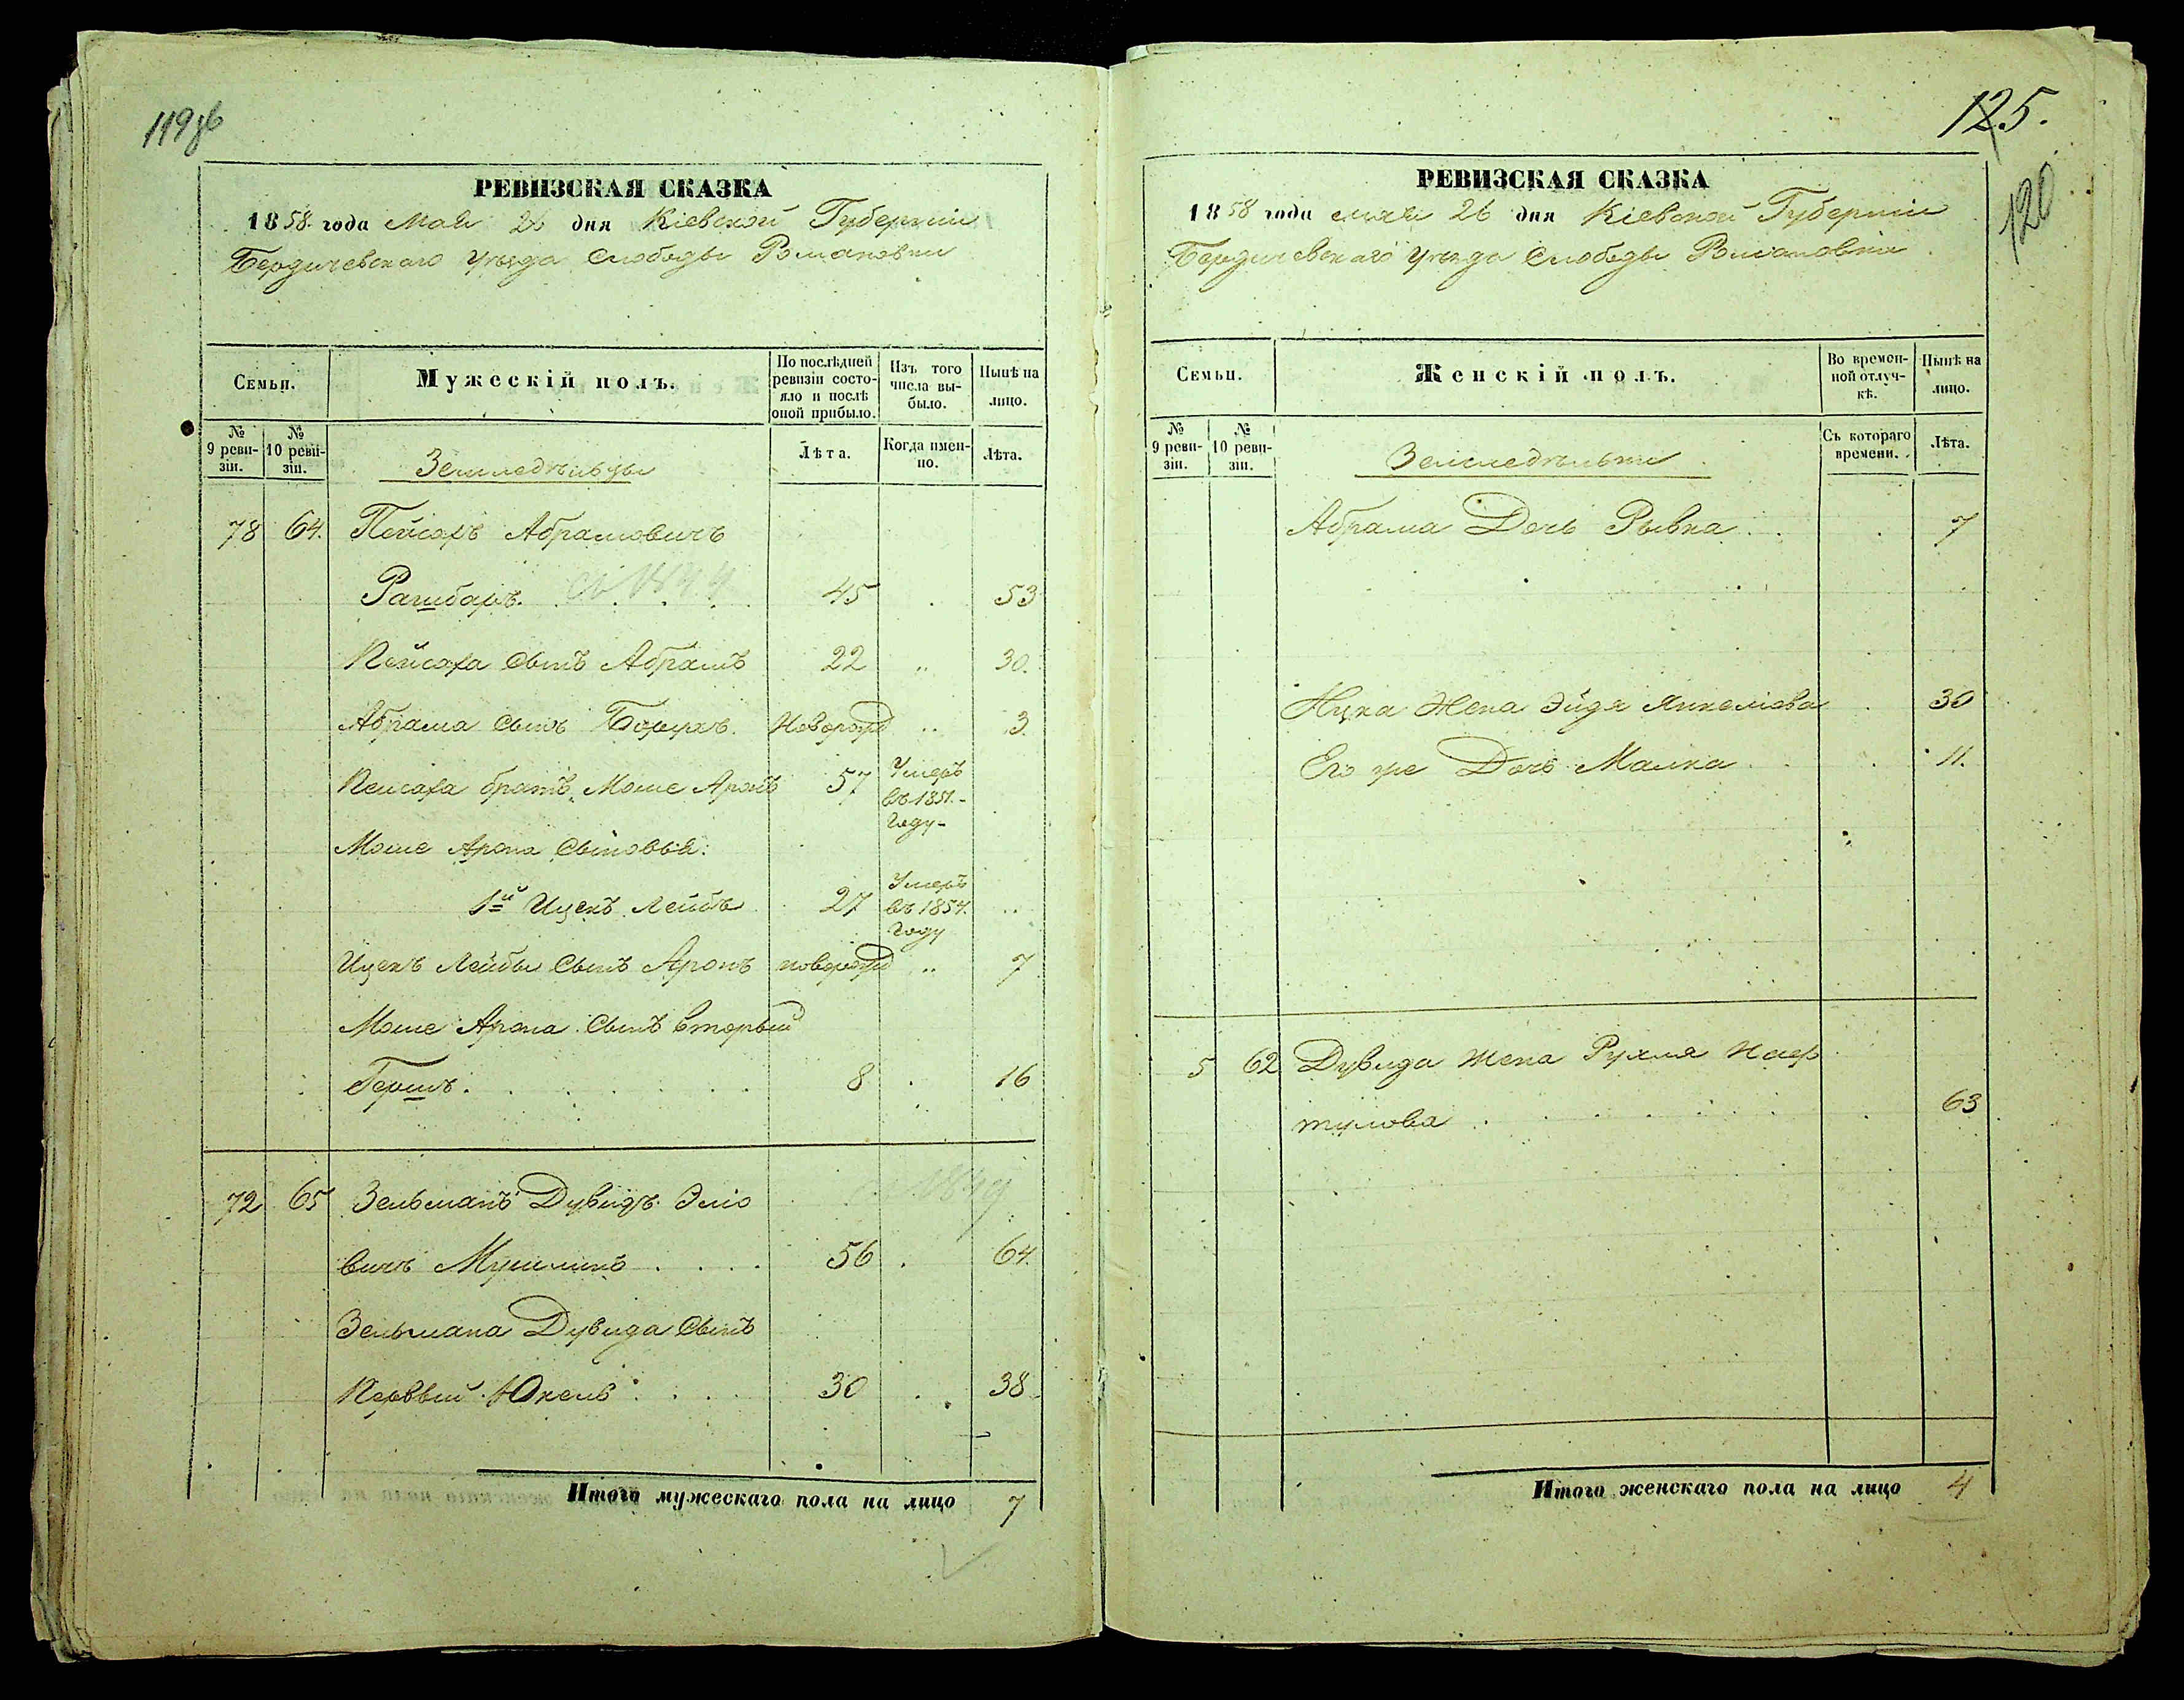 119 об
РЕВИЗСКАЯ СКАЗКА
1858 года Мая 26 дня Кіевской Губерніи
Бердичевскаго уѣзда Слободы Романовки
Семьи.
Мужескій полъ.
По послѣдней ревизіи состояло и послѣ оной прибыло.
Изъ того числа выбыло.
Нынѣ на лицо.
№ 9 ревизіи.
№ 10 ревизіи.
Земледѣльцы
Лѣта.
Когда именно.
Лѣта.
78 64. Пейсахъ Абрамовичъ
Рашбаръ. 45 53
Пейсаха сынъ Абрамъ 22 30.
Абрама сынъ Борухъ. Новорожд 3
Пейсаха братъ Моше Аронъ 57 Умеръ
въ 1851.
Году
Моше Арона сыновья:
1й Ицекъ Лейбъ 27 Умеръ
въ 1854.
Году
Ицекъ Лейбы сынъ Аронъ новорожд 7
Моше Арона сынъ вторый
Гершъ. 8 16
72 65 Зельманъ Дувидъ Эліо
вичъ 56 64.
Зельмана Дувида сынъ
Первый Юкель 30 38
Итого мужескаго пола на лицо 7
125.
120
РЕВИЗСКАЯ СКАЗКА
1858 года мая 26 дня Кіевской Губерніи
Бердичевскаго уѣзда Слободы Романовки
Семьи.
Женскій полъ.
Во временной отлучкѣ.
Нынѣ на лицо.
№ 9 ревизіи.
№ 10 ревизіи.
Земледѣльки
Съ котораго времени.
Лѣта.
Абрама Дочь Рывка 7
Ицка Жена Эйдя Янкелиова 30
Его же Дочь Малка 11.
5 62 Дувида Жена Рухля Наф
тулова 63
Итого женскаго пола на лицо 4